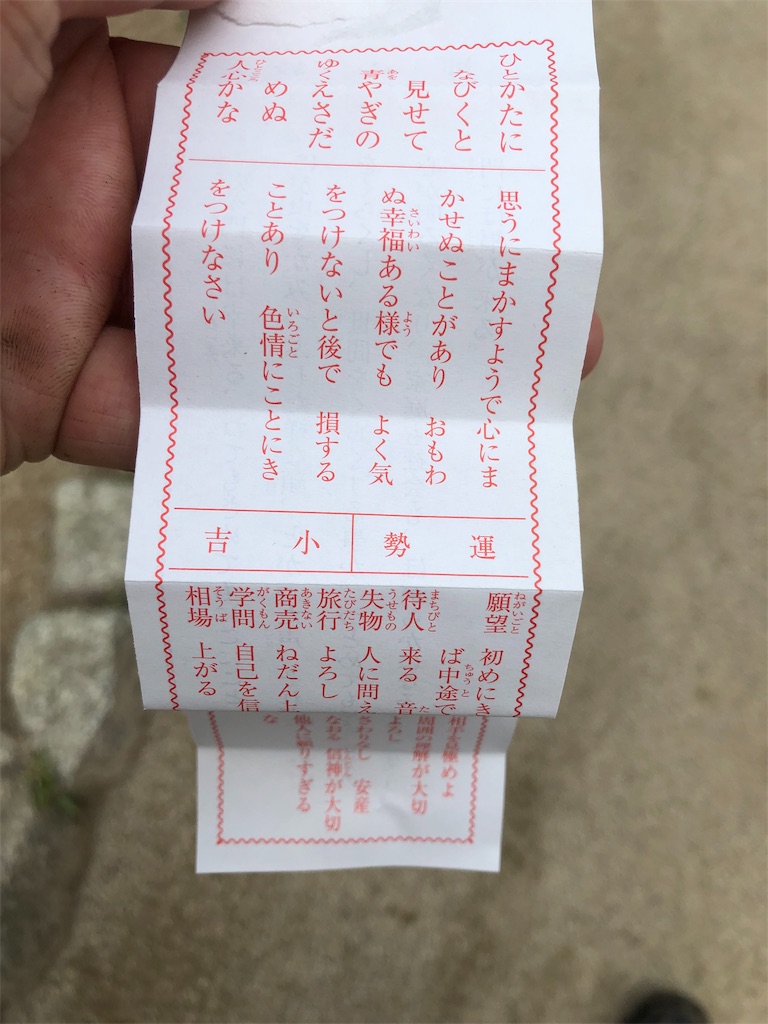 ひとかたに
なびくと
見せて
青やぎの
ゆくえさだ
めぬ
人心かな
思うにまかすようで心にま
かせぬことがあり　おもわ
ぬ幸福ある様でも　よく気
をつけないと後で　損する
ことあり　色情にことにき
をつけなさい
運勢
小吉
願望　初めにき
ば中途で
待人　来る　音
失物　人に問え
旅行　よろし
商売　ねだん上
学問　自己を信
相場　上がる
相手を見極めよ
周囲の理解が大切
よろし
さわりなし　安産
なおる　信神が大切
他人に頼りすぎる
な